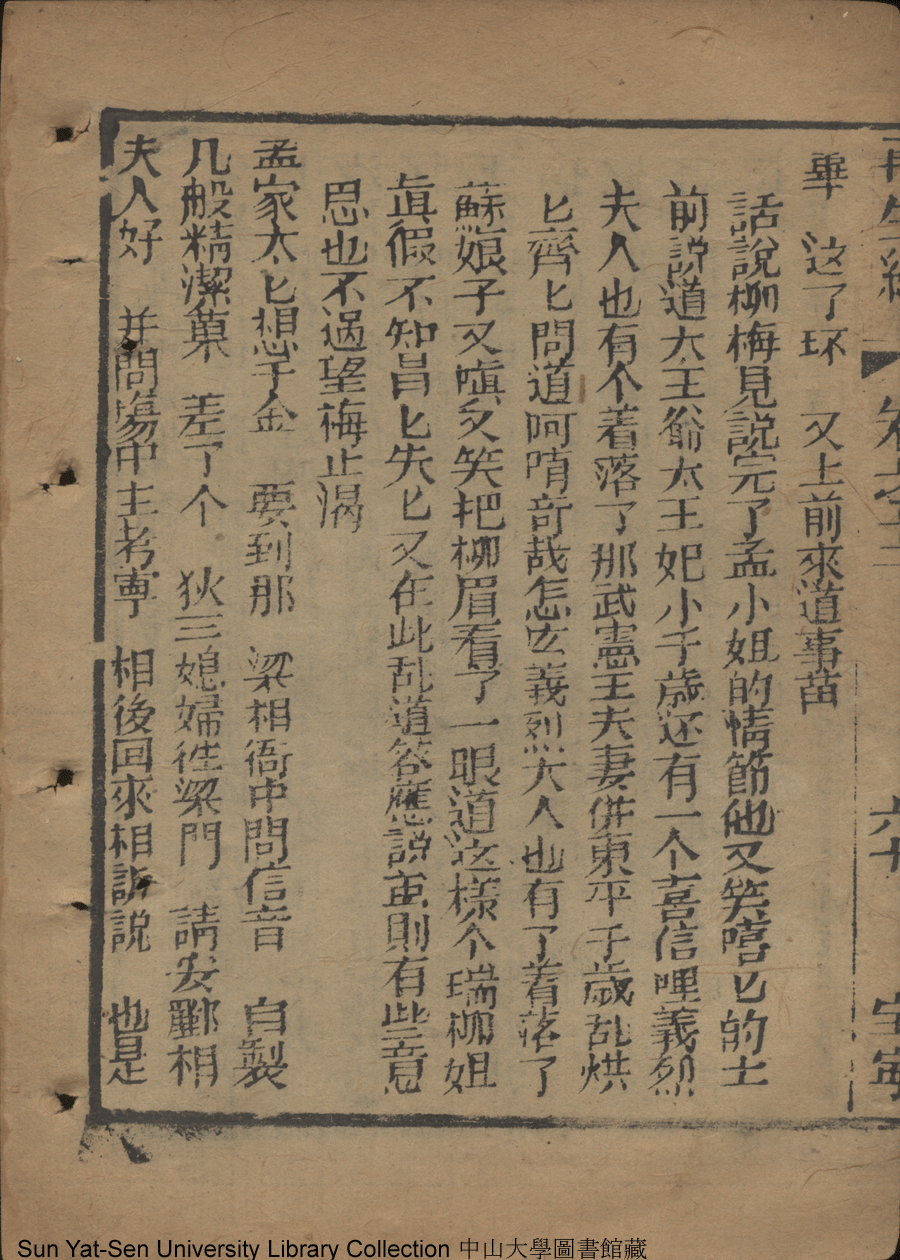 再生緣 卷之十二 六十 宝寧
畢 这了环 又上前來道事苗
話說柳梅見說完了孟小姐的情節他又笑嘻匕的士
前説道大王爺太王妃小千歲还有一个喜信哩義烈
夫人也有个着落了那武憲王夫妻併東平千歲乱烘
匕齊匕問道呵唷竒哉怎庅義烈大人也有了着落了
蘇娘子又嗔又笑把柳眉看了一眼道这様个瑞柳姐
眞假不知冒匕失匕又在此乱道答應説重則有些意
思也不過望梅止渴
孟家太匕想于金 要到那 梁相衙中問信音 自製
几般精潔菓 差了个 狄三媳婦徃梁門 請安酈相
夫人好 并問塲中主考寧 相後回來相訴説 也是
Sun Yat-Sen University Library Collection 中山大學圖書館藏